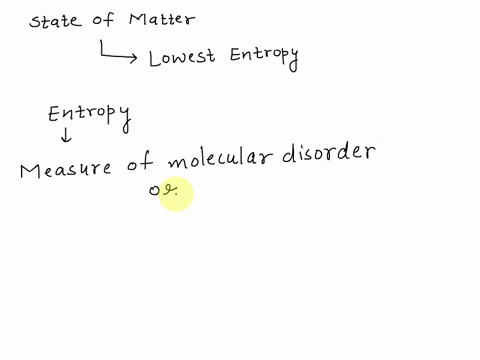 State of Matter
Lowest Entropy
Entropy
Measure of molecular disorder
or